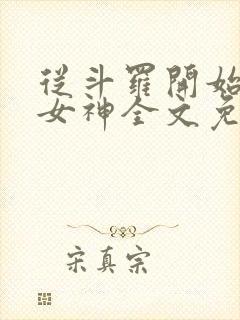 從斗羅開始
女神全文免
宋真宗